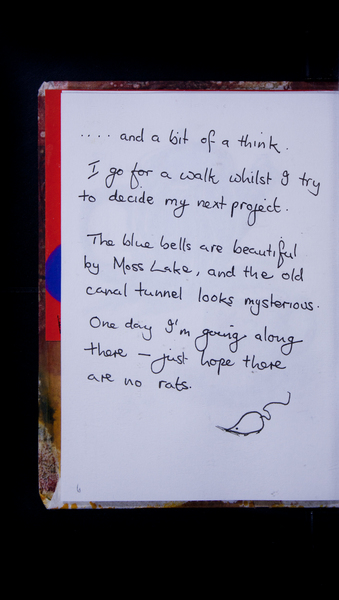 .... and a bit of a think.
I go for a walk whilst I try
to decide my next project.
The blue bells are beautiful
by Moss Lake, and the old
canal tunnel looks mysterious.
One day I'm going along
there – just hope there
are no rats.